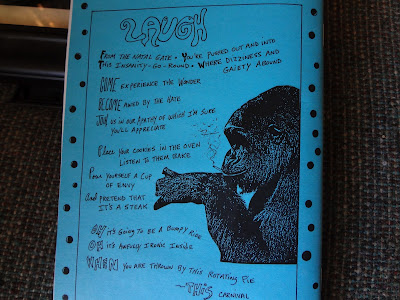 LAUGH
FROM THE NATAL GATE • YOU'RE PUSHED OUT AND INTO
THIS INSANITY-GO-ROUND • WHERE DIZZINESS AND
GAIETY ABOUND
COME EXPERIENCE THE WONDER
BECOME AWED BY THE HATE
JOIN US IN OUR APATHY OF WHICH I'M SURE
YOU'LL APPRECIATE
PLACE YOUR COOKIES IN THE OVEN
LISTEN TO THEM BAKE
POUR YOURSELF A CUP
OF ENVY
AND PRETEND THAT
IT'S A STEAK
IT'S GOING TO BE A BUMPY RIDE
IT'S AWFULLY IRONIC INSIDE
WHEN YOU ARE THROWN BY THIS ROTATING PIE
~THIS CARNIVAL